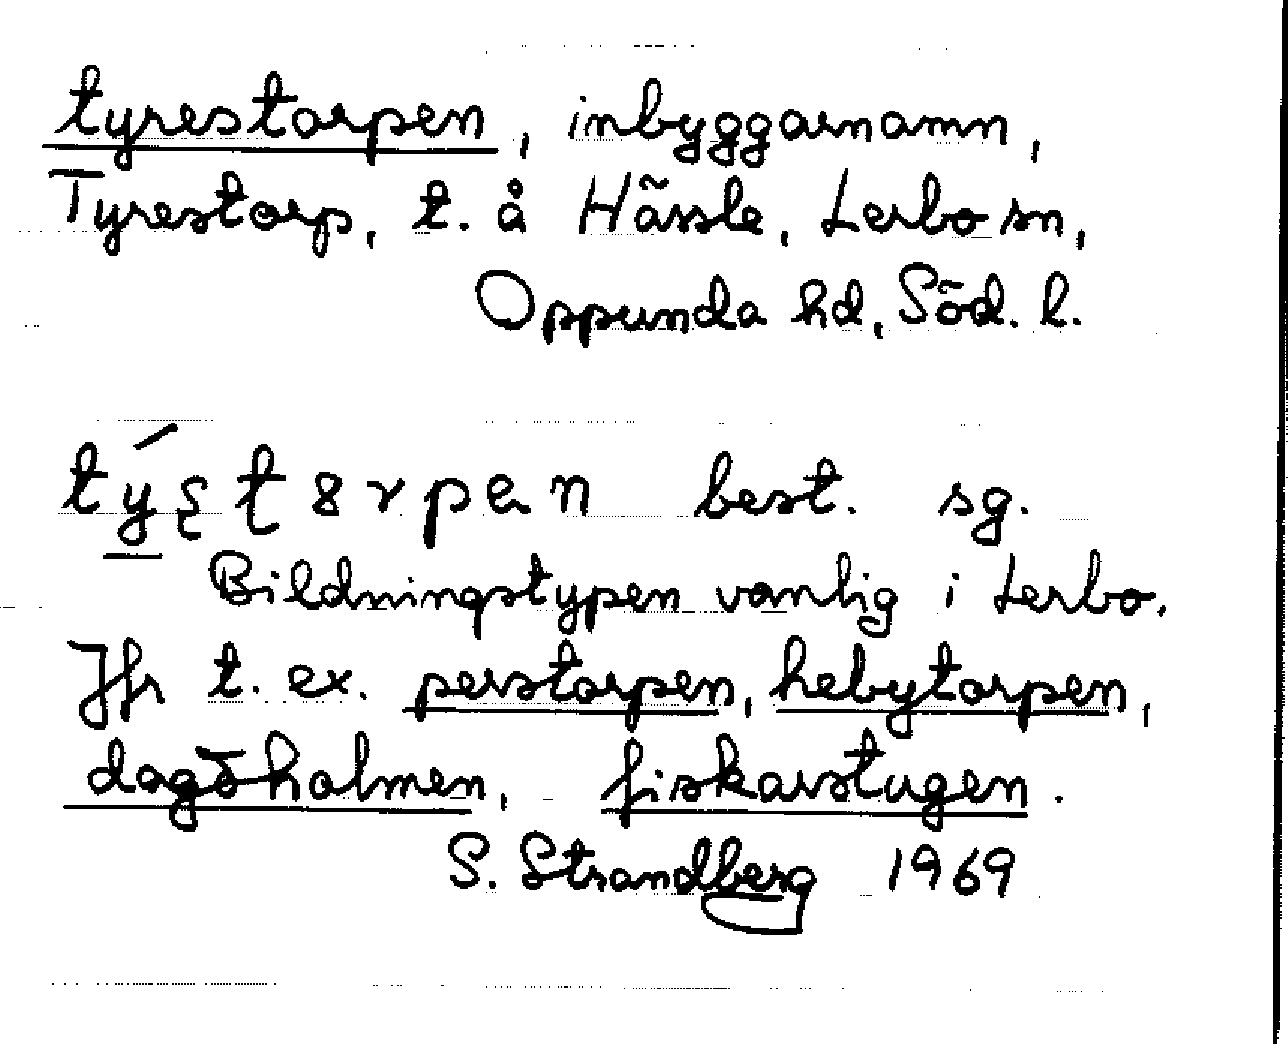 tyrestorpen, inbyggarnamn,
Tyrestorp, t. å Hässle, Lerbo sn,
Oppunda hd, Söd. l.
best. sg.
Bildningstypen vanlig i Lerbo.
Jfr t. ex. perstorpen, hebytorpen,
dagöholmen, fiskarstugen.
S. Strandberg 1969